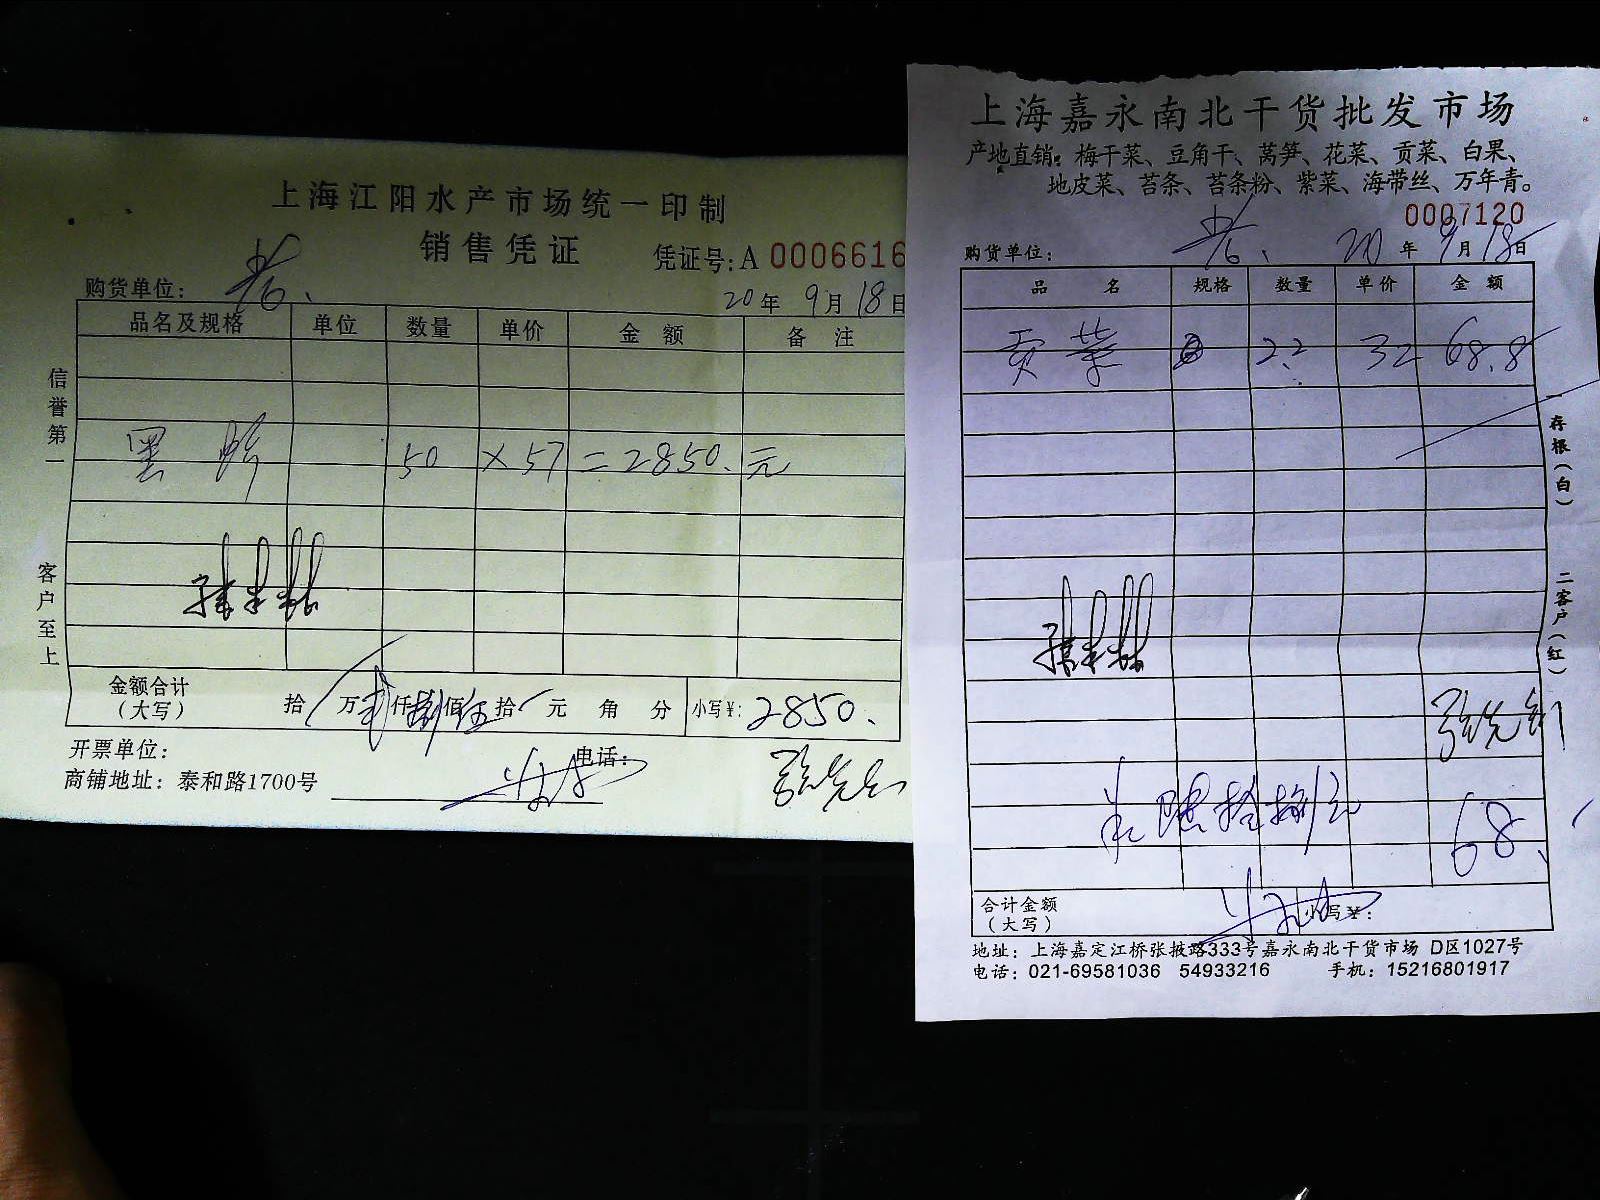 上海江阳水产市场统一印制
销售凭证 凭证号:A 0006616
购货单位: 20年 9月 18日
品名及规格 单位 数量 单价 金额 备注
信誉第一
50 ×57 =2850.元
客户至上
金额合计（大写） 拾 万 贰仟 捌佰 伍拾 元 角 分 小写¥: 2850.
开票单位: 电话:
商铺地址: 泰和路1700号
上海嘉永南北干货批发市场
产地直销: 梅干菜、豆角干、莴笋、花菜、贡菜、白果、
地皮菜、苔条、苔条粉、紫菜、海带丝、万年青。
0007120
购货单位: 20年 9月 18日
品名 规格 数量 单价 金额
贡菜 22 32 68.8
一存根（白）
二客户（红）
陆拾捌元 68.
合计金额（大写） 小写¥:
地址: 上海嘉定江桥张掖路333号嘉永南北干货市场 D区1027号
电话: 021-69581036 54933216 手机: 15216801917